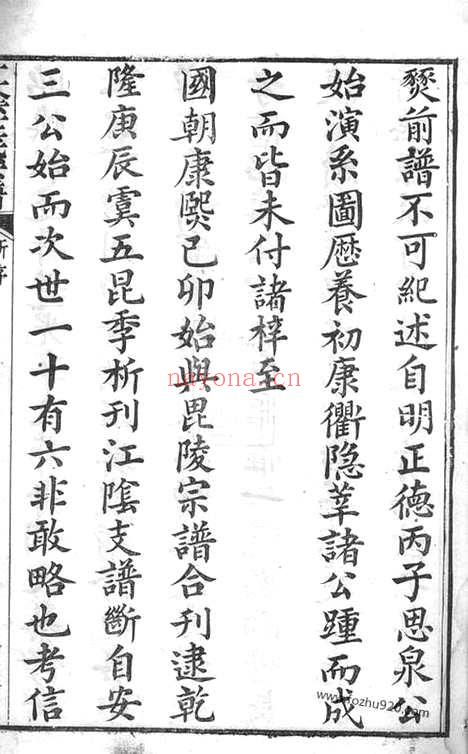 燹前譜不可紀述自明正德丙子思泉公
始演系圖歷養初康衢隐莘諸公踵而成
之而皆未付諸梓至
國朝康熙己卯始與毘陵宗譜合刊逮乾
隆庚辰寞五昆季析刊江陰支譜斷自安
三公始而次世一十有六非敢略也考信
新序
nayona.cn